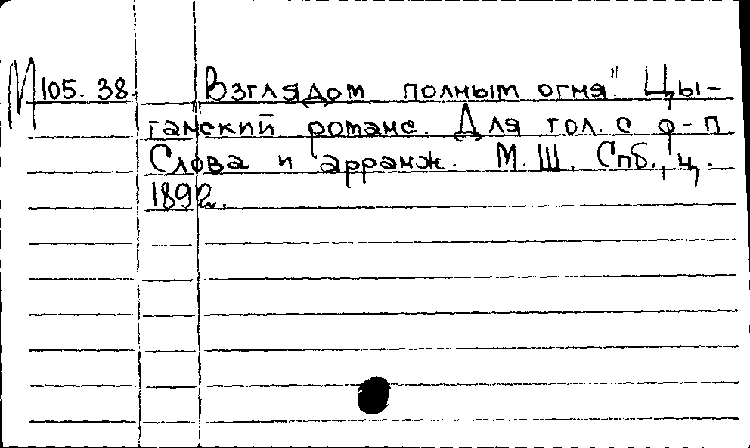 М 105. 38. "Взглядом полным огня" Цы-
ганский романс. Для гол. с ф-п
Слова и арранж. М. Ш. Спб., ц.
1892.